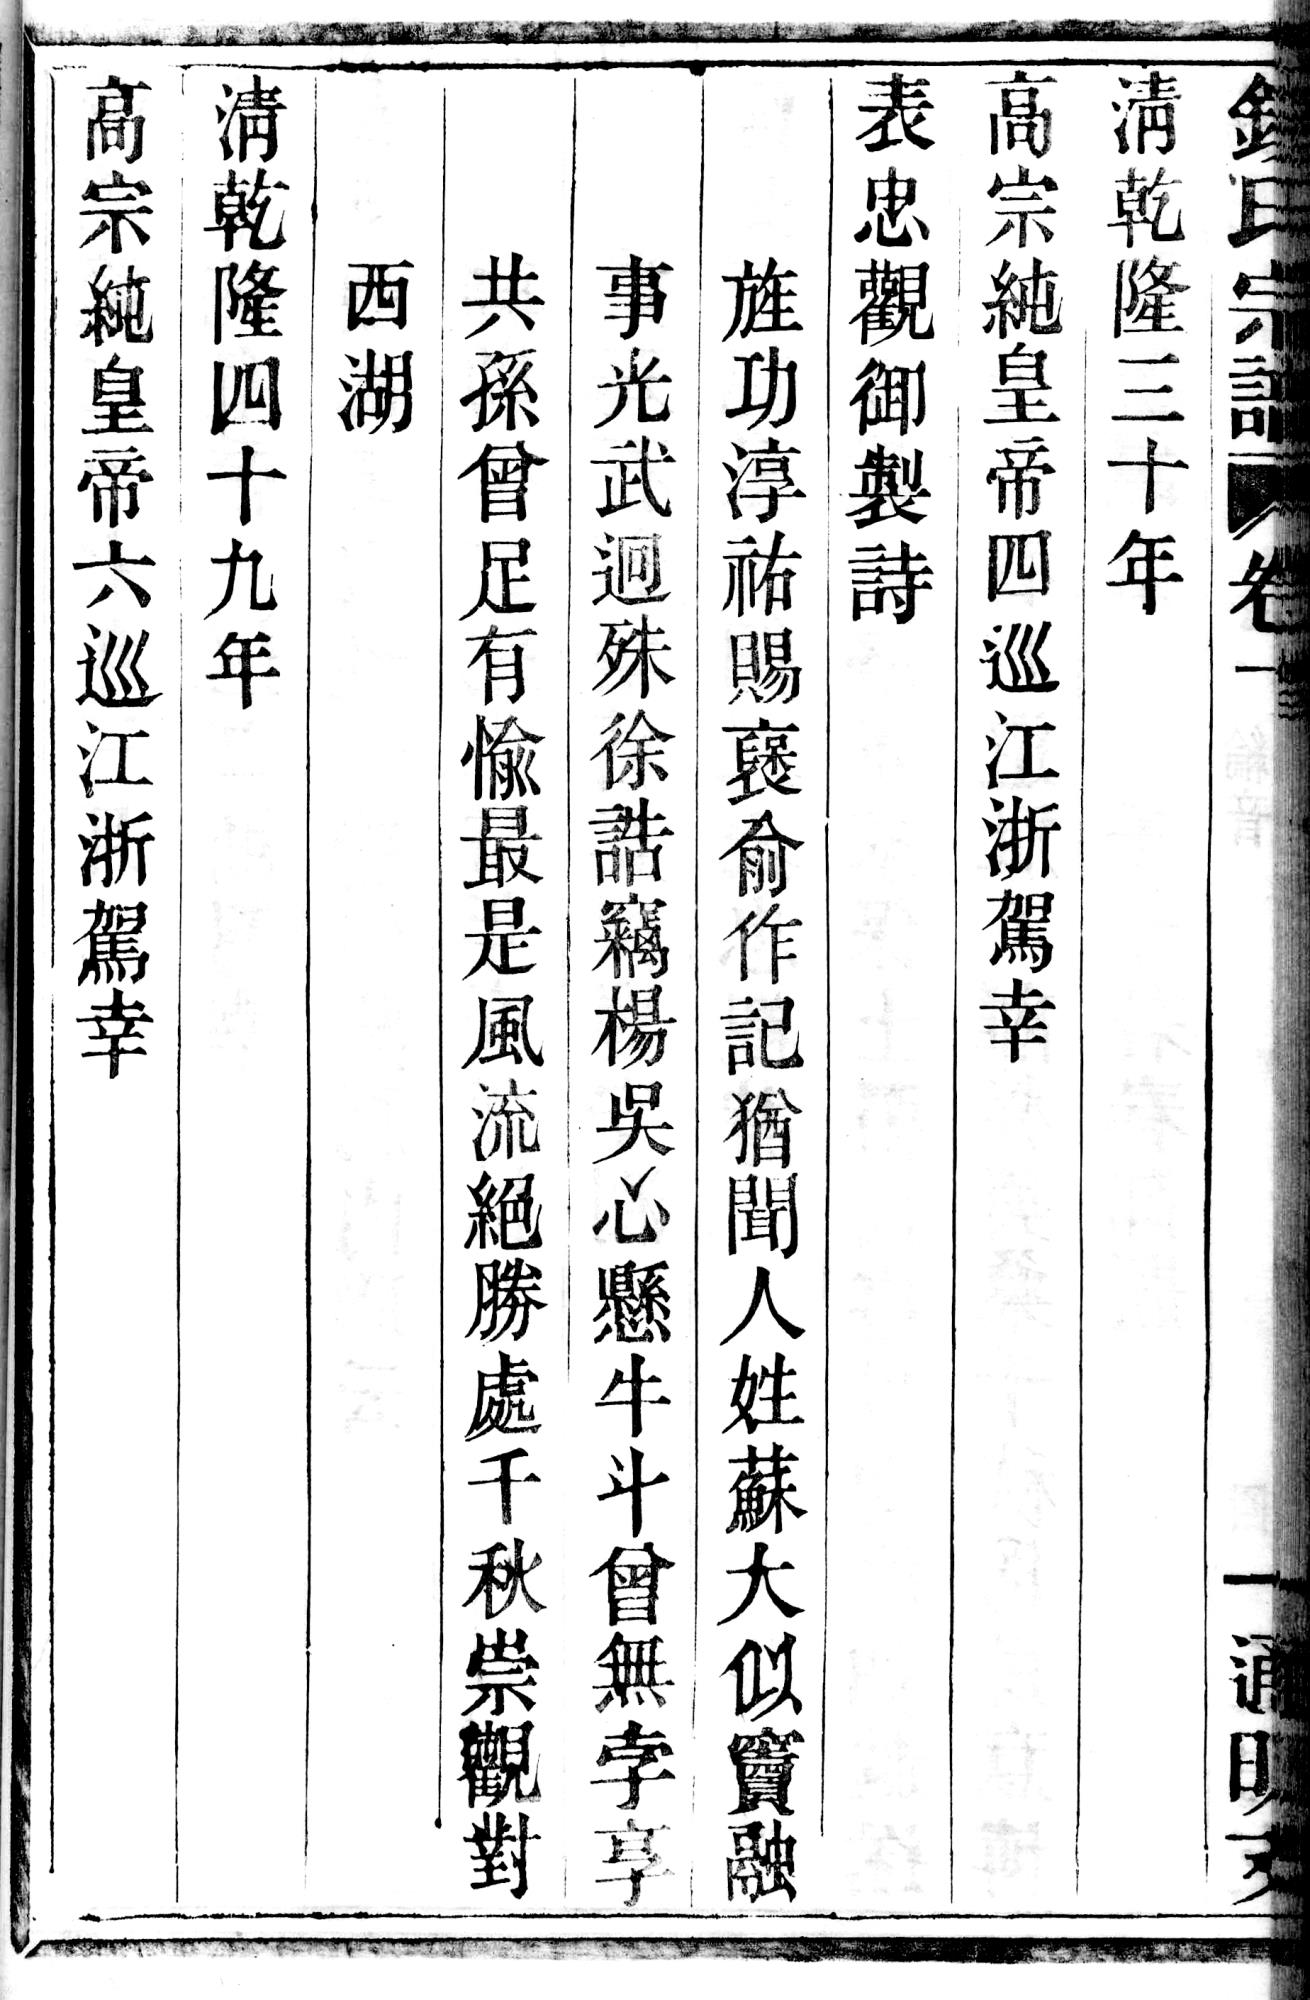 錢氏宗譜 卷一
清乾隆三十年
高宗純皇帝四巡江浙駕幸
表忠觀御製詩
旌功淳祐賜褒俞作記猶聞人姓蘇大似竇融
事光武迥殊徐誥竊楊吳心懸牛斗曾無孛享
共孫曾足有愉最是風流絕勝處千秋崇觀對
西湖
清乾隆四十九年
高宗純皇帝六巡江浙駕幸